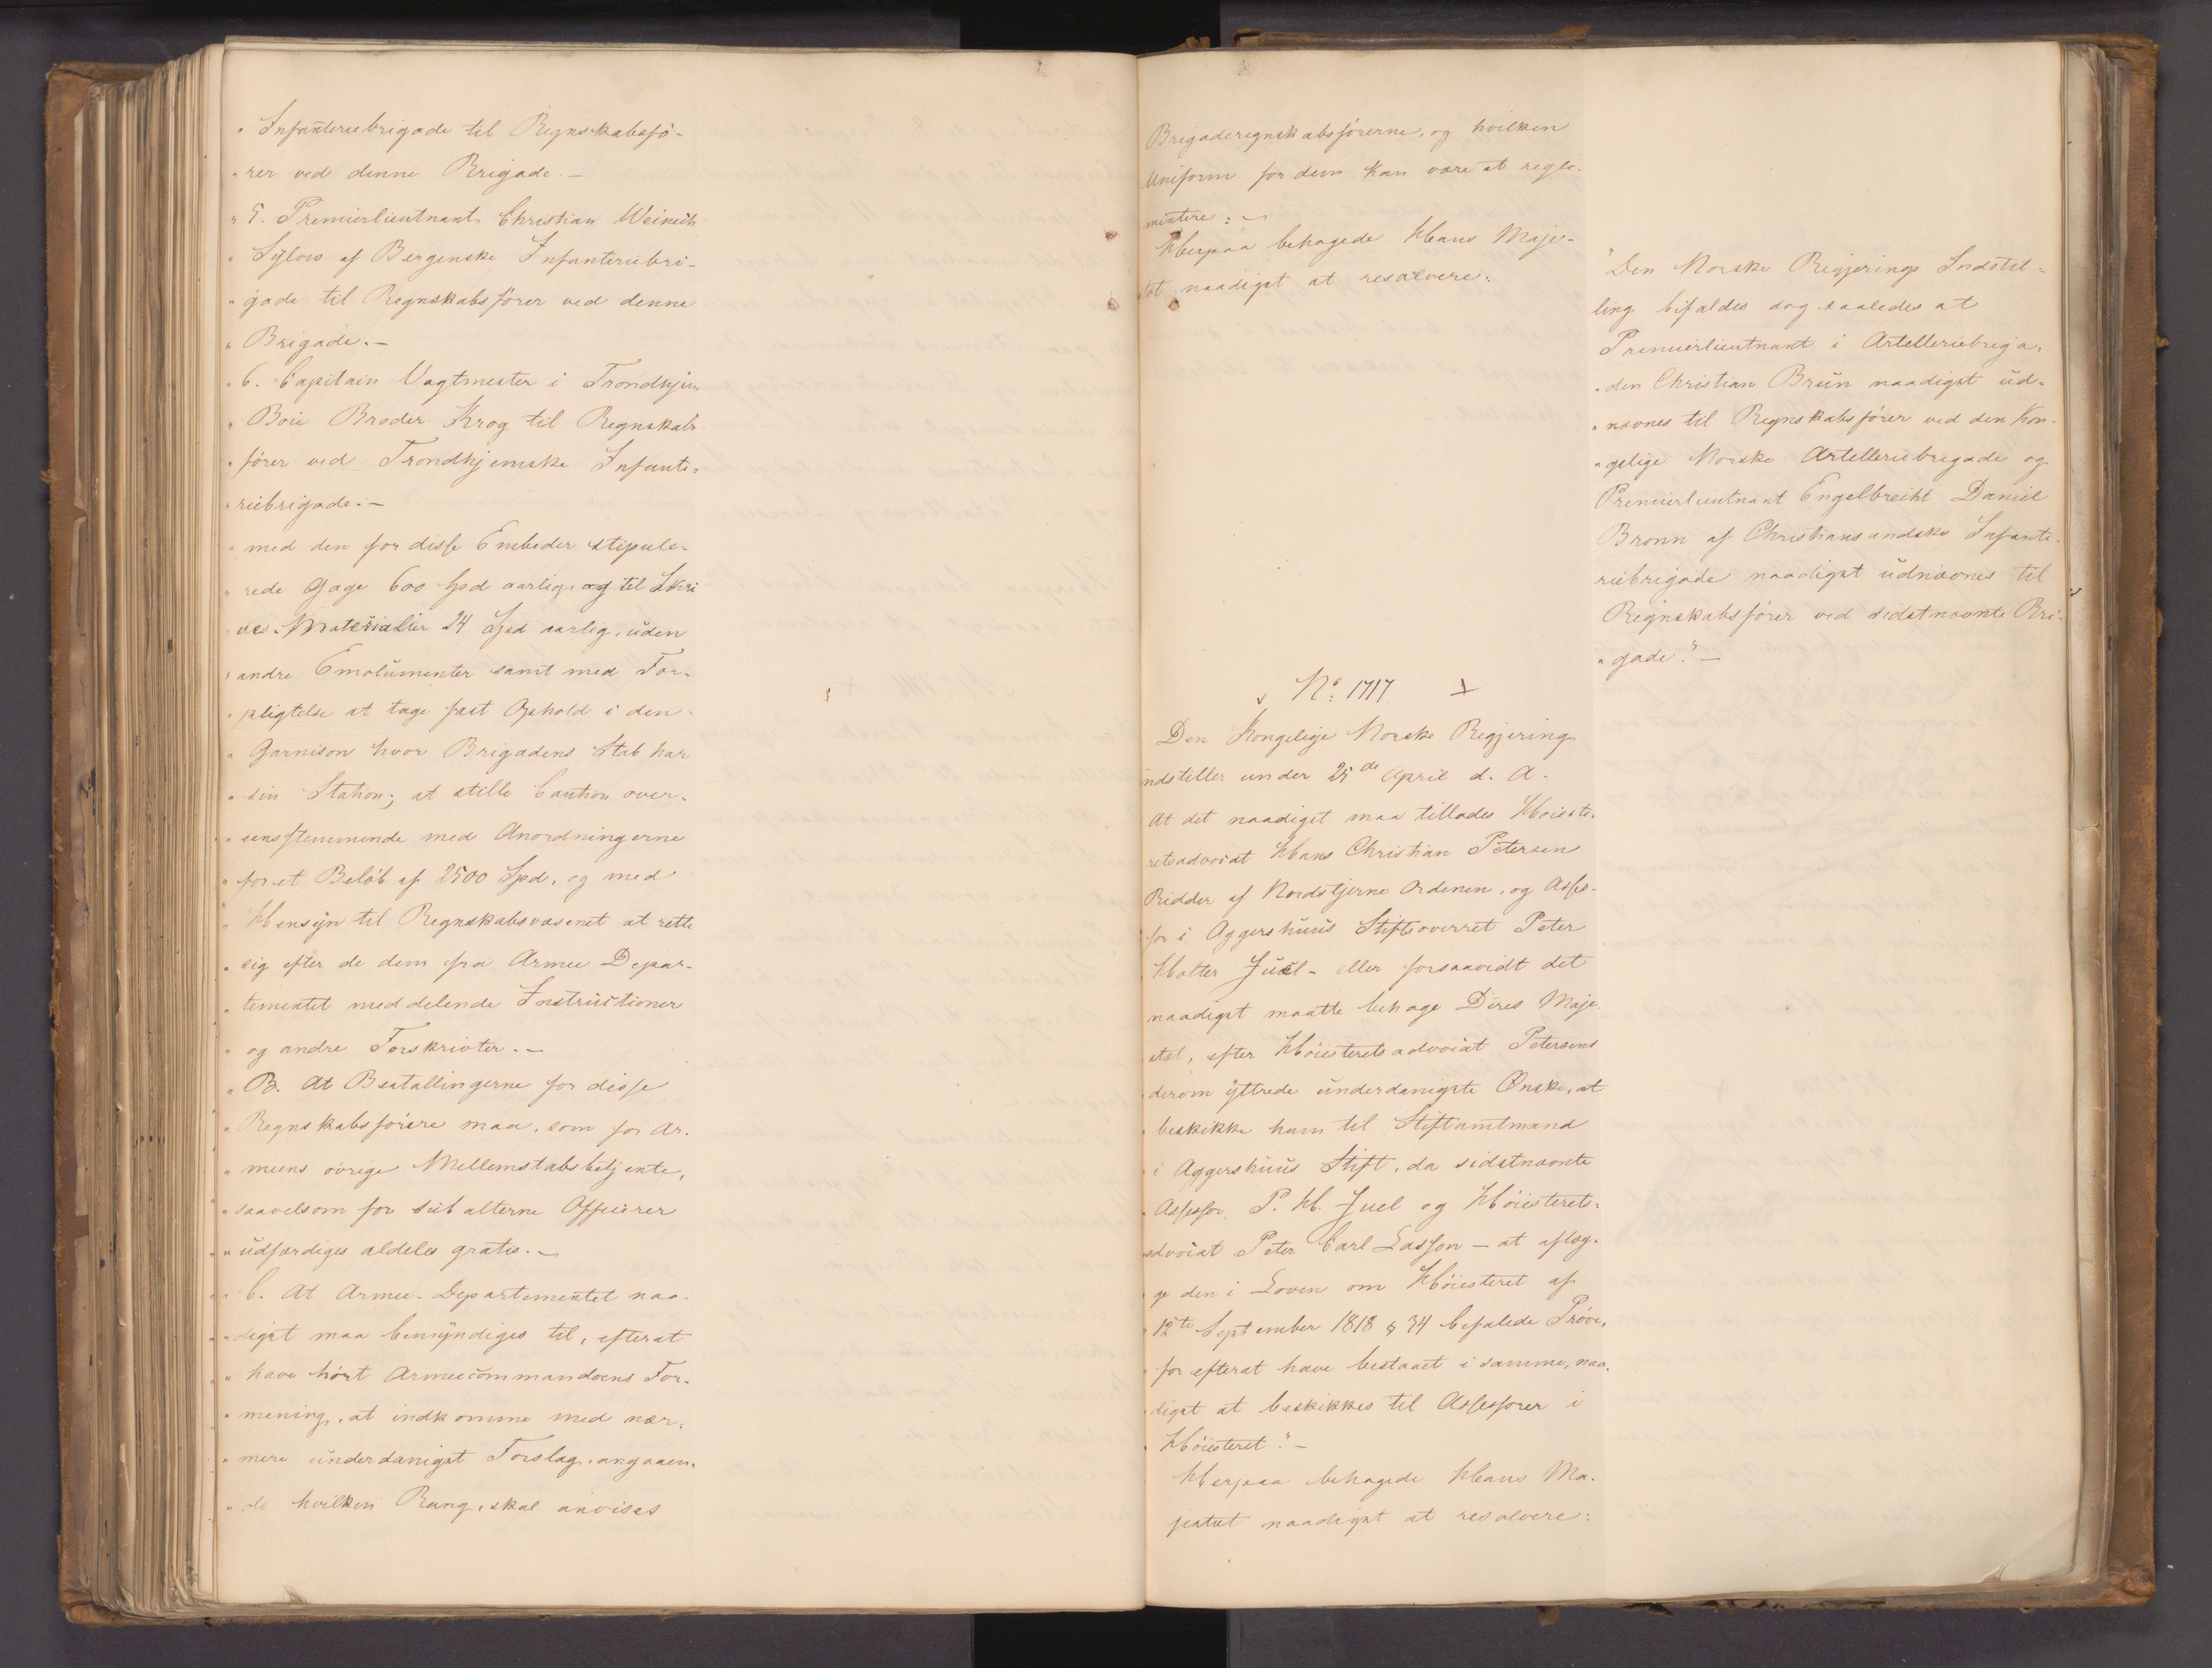 " Infanteriebrigade til Regnskabsfö-
" rer ved denne Brigade. -
" 5. Premierlieutnant Christian Weinich
" Sÿlow af Bergenske Infanteriebri-
" gade til Regnskabsförer ved denne
" Brigade. -
" 6. Capitain Vagtmester i Trondhjem
" Boie Broder Krog til Regnskabs
" förer ved Trondhjemske Infante-
" riebrigade. -
" med den for disse Embeder stipule-
" rede Gage 600 Spd aarlig, og til Skri
" ve-Materialier 24 Spd aarlig, uden
" andre Emolumenter samt med For-
" pligtelse at tage fast Ophold i den
" Garnison hvor Brigadens Stab har
" sin Station; at stille Caution over-
" eensstemmende med Anordningerne
" for et Belöb af 2500 Spd, og med
" Hensÿn til Regnskabsvæsenet at rette
" sig efter de dem fra Armee Depar-
" tementet meddelende Instructioner
" og andre Forskrivter. -
" B. At Bestallingerne for disse
" Regnskabsförere maa, som for Ar-
" meens övrige Mellemstabsbetjente,
" saavelsom for subalterne Officerer
" udfærdiges aldeles gratis. -
" C. At Armee-Departementet naa-
" digst maa bemÿndiges til, efterat
" have hört Armeecommandoens For-
" mening, at indkomme med nær-
" mere underdanigst Forslag, angaaen-
" de hvilken Rang, skal anvises
Brigaderegnskabsförerne, og hvilken
Uniform for dem kan være at regle-
mentere: -
Herpaa behagede Hans Maje-
stæt naadigst at resolvere:
"Den Norske Regjerings Indstil-
ling bifaldes dog saaledes at
Premierlieutnant i Artelleriebriga-
" den Christian Brun naadigst ud-
" nævnes til Regnskabsförer ved den Kon-
" gelige Norske Artelleriebrigade og
Premierlieutnant Engelbrecht Daniel
Bronn af Christiansandske Infante-
riebrigade naadigst udnævnes til
Regnskabsförer ved sidstnævnte Bri-
" gade." -
No: 1717 +
Den Kongelige Norske Regjering
indstiller under 25de April d. A.
At det naadigst maa tillades Höieste-
retsadvocat Hans Christian Petersen
Ridder af Nordstjerne Ordenen, og Asses-
sor i Aggershuus Stiftsoverret Peter
Hatter Juel - eller forsaavidt det
naadigst maatte behage Deres Maje
stæt, efter Höiesteretsadvocat Petersens
derom ÿttrede underdanigste Onske, at
" beskikke ham til Stiftamtmand
" i Aggershuus Stift, da sidstnævnte
" Assessor P. H. Juel og Höiesterets-
advocat Peter Carl Lasson - at aflæg-
" ge den i Loven om Höiesteret af
" 12te September 1818 § 34 befalede Pröve,
" for efterat have bestaaet i samme, naa-
" digst at beskikkes til Assessorer i
" Höiesteret." -
Herpaa behagede Hans Ma-
jestæt naadigst at resolvere: